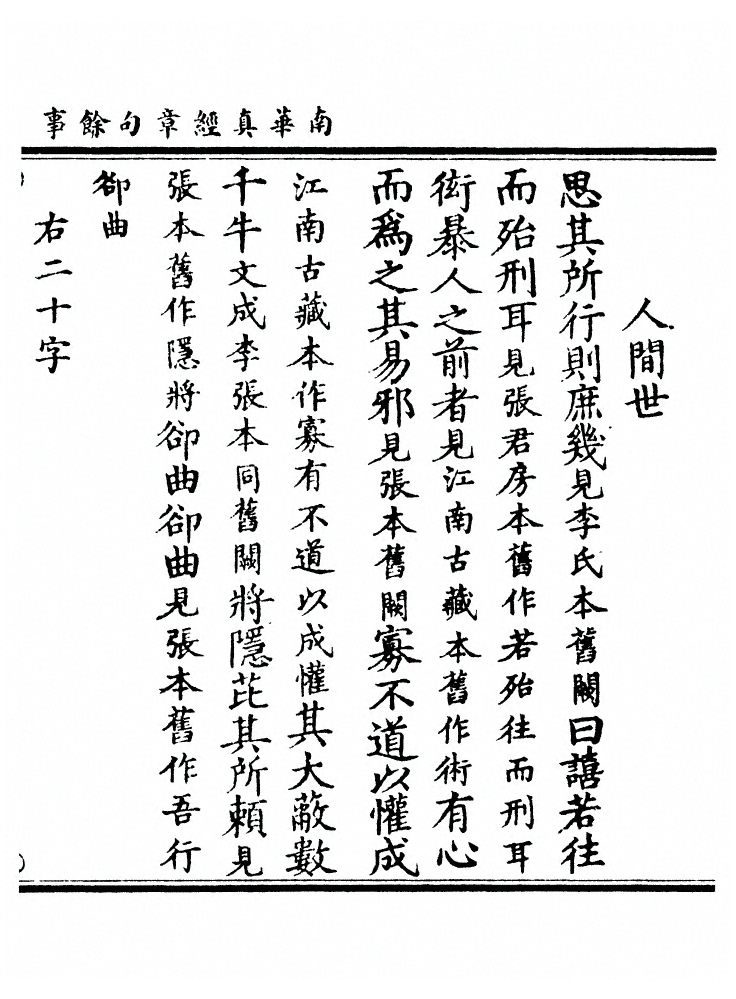 南華真經章句餘事
人間世
思其所行則庶幾見李氏本舊闕曰譆若往
而殆刑耳見張君房本舊作若殆往而刑耳
衒暴人之前者見江南古藏本舊作術有心
而爲之其易邪見張本舊闕寡不道以懽成
江南古藏本作寡有不道以成懽其大蔽數
千牛文成李張本同舊闕將隱芘其所頼見
張本舊作隱將郤曲郤曲見張本舊作吾行
郤曲
右二十字